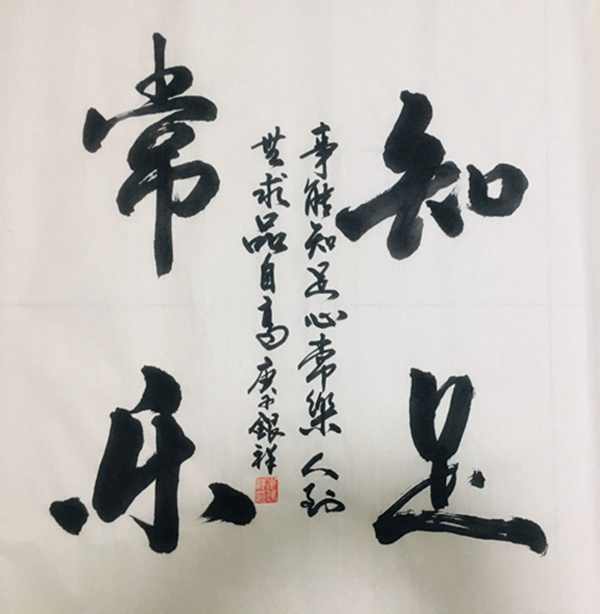 知足
常乐
事能知足心常樂人到
無求品自高庚子銀祥